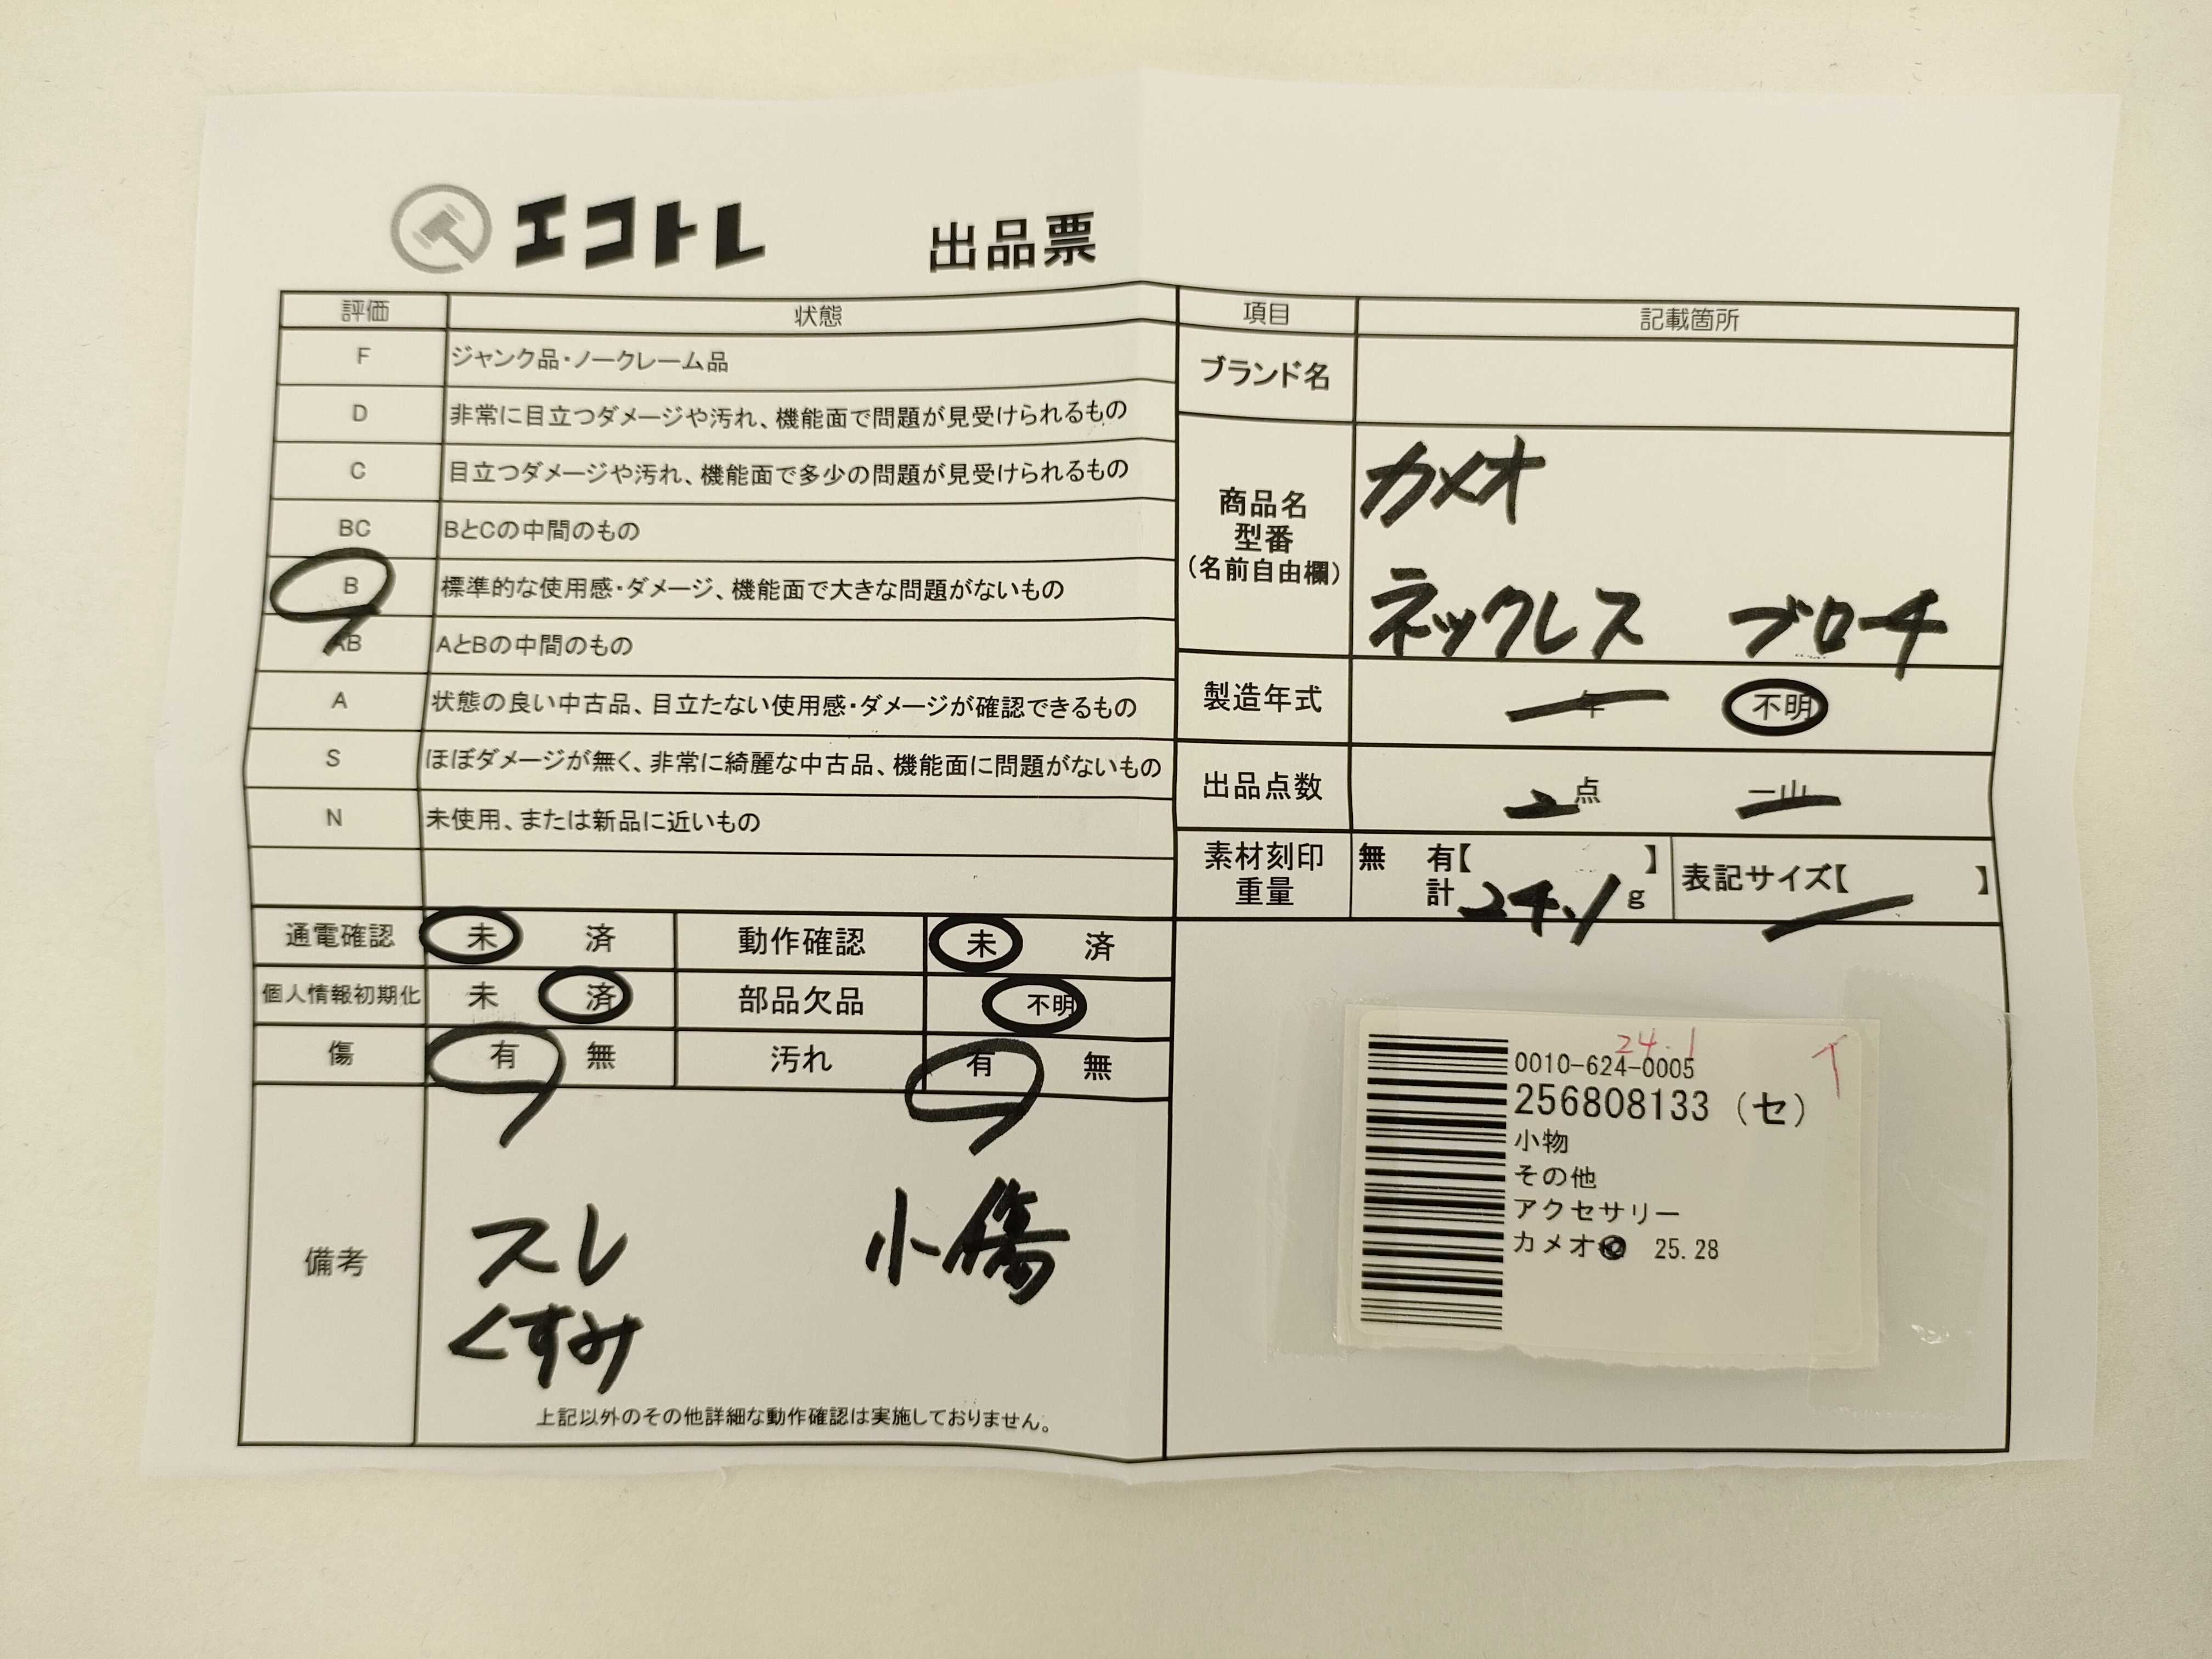 エコトレ 出品票
評価 状態
F ジャンク品・ノークレーム品
D 非常に目立つダメージや汚れ、機能面で問題が見受けられるもの
C 目立つダメージや汚れ、機能面で多少の問題が見受けられるもの
BC BとCの中間のもの
B 標準的な使用感・ダメージ、機能面で大きな問題がないもの
AB AとBの中間のもの
A 状態の良い中古品、目立たない使用感・ダメージが確認できるもの
S ほぼダメージが無く、非常に綺麗な中古品、機能面に問題がないもの
N 未使用、または新品に近いもの
通電確認 未 済 動作確認 未 済
個人情報初期化 未 済 部品欠品 不明
傷 有 無 汚れ 有 無
備考
スレ 小傷
くすみ
上記以外のその他詳細な動作確認は実施しておりません。
項目 記載箇所
ブランド名
商品名
型番
(名前自由欄)
カメオ
ネックレス ブローチ
製造年式 年 不明
出品点数 2点 一山
素材刻印
重量
無 有【 】
計 24.1g
表記サイズ【 】
24.1
0010-624-0005
256808133 (セ)
小物
その他
アクセサリー
カメオ② 25.28